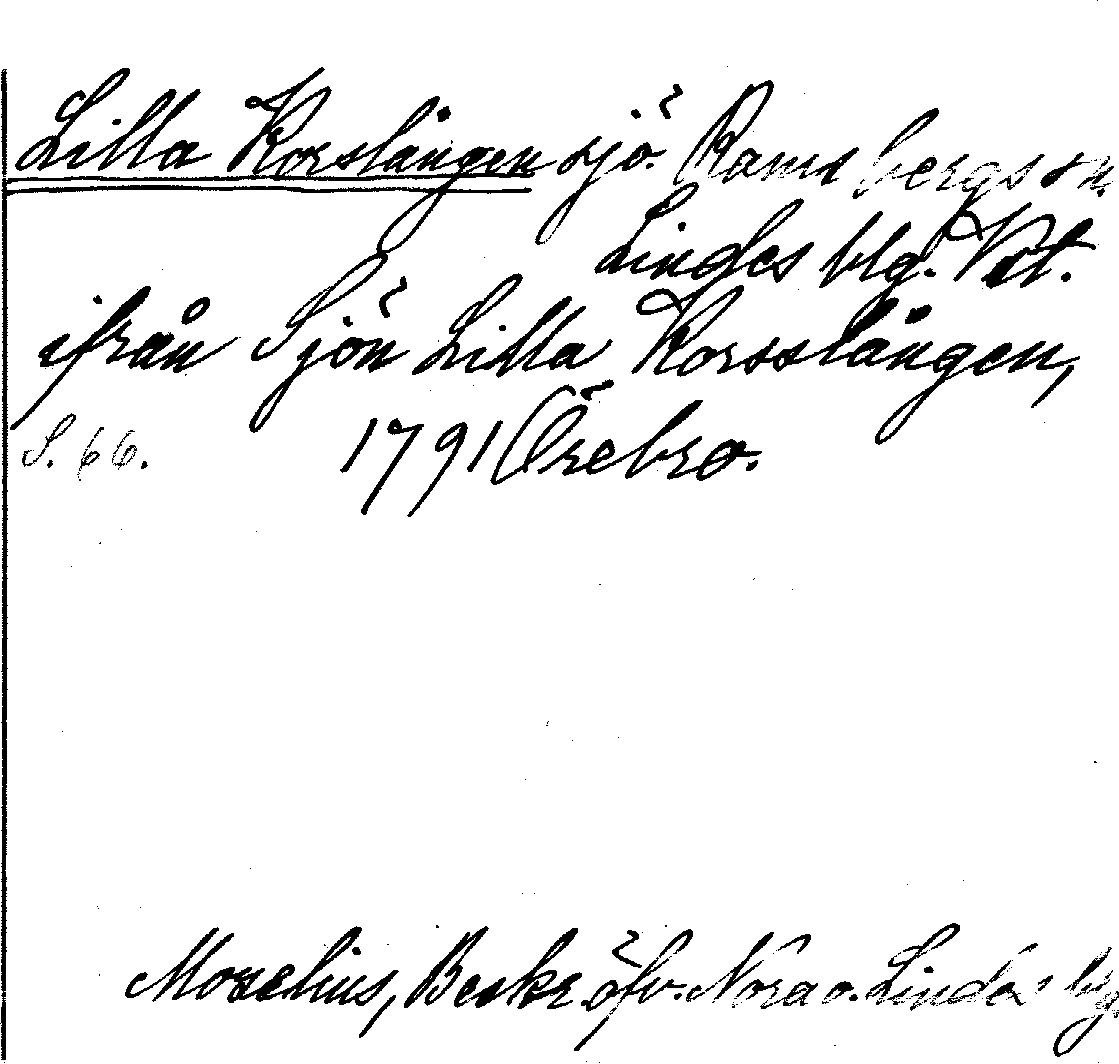 Lilla Korslängen sjö. Ramsbergs sn.
Lindes blg. Vstl.
ifrån Sjön Lilla Korsslången,
S. 66. 1791 Örebro.
Morelius, Beskr. öfv. Nora o. Lindes blg.